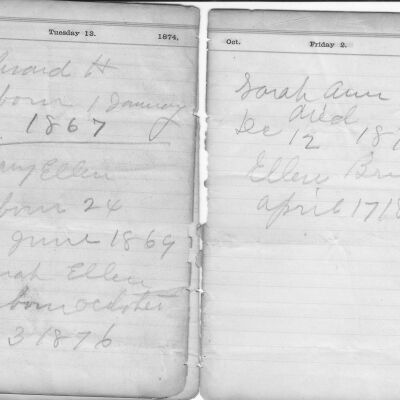 Tuesday 13. 1874.
H
born 1 January
1867
Ellen
born 24
June 1869
Ellen
born october
3 1876
Oct. Friday 2.
Sarah Ann
died
Dec 12 187
Ellen
april 17 18